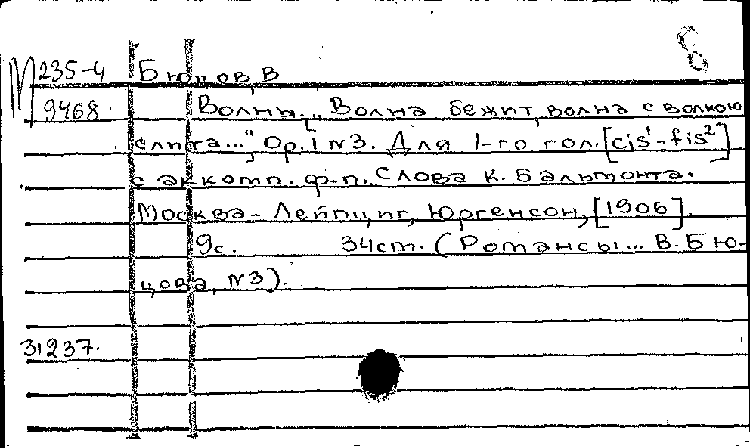 8
М 235-4 Бюцов, В
9468. Волны. ["Волна бежит, волна с волною
слита...", Ор. 1 №3. Для 1-го гол. [cis¹-fis²]
с аккомп. ф-п. Слова К. Бальмонта.
Москва-Лейпциг, Юргенсон, [1906].
9с. 34см. (Романсы... В. Бю-
цова, №3).
31237.